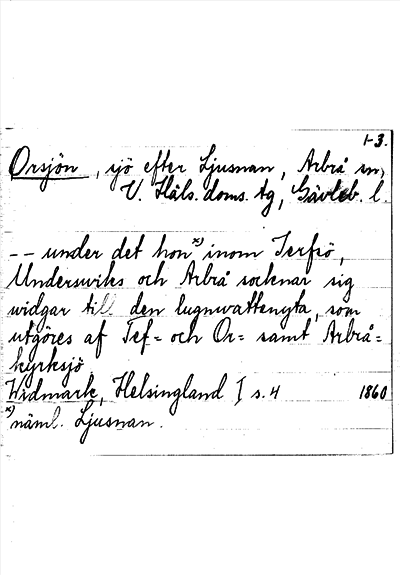 1-3.
Orsjön, sjö efter Ljusnan, Arbrå sn,
V. Häls. doms. tg, Gävleb. l.
-- under det hon x) inom Jerfsö,
Undersviks och Arbrå socknar sig
widgar till den lugnwattenyta, som
utgöres af Tef= och Or= samt Arbrå=
kyrksjö
Widmark, Helsingland I s. 4 1860
x) näml. Ljusnan.